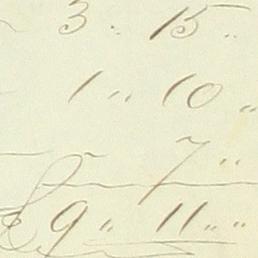 3 " 15 "
1 " 10 "
7 "
£ 9 " 11 " "